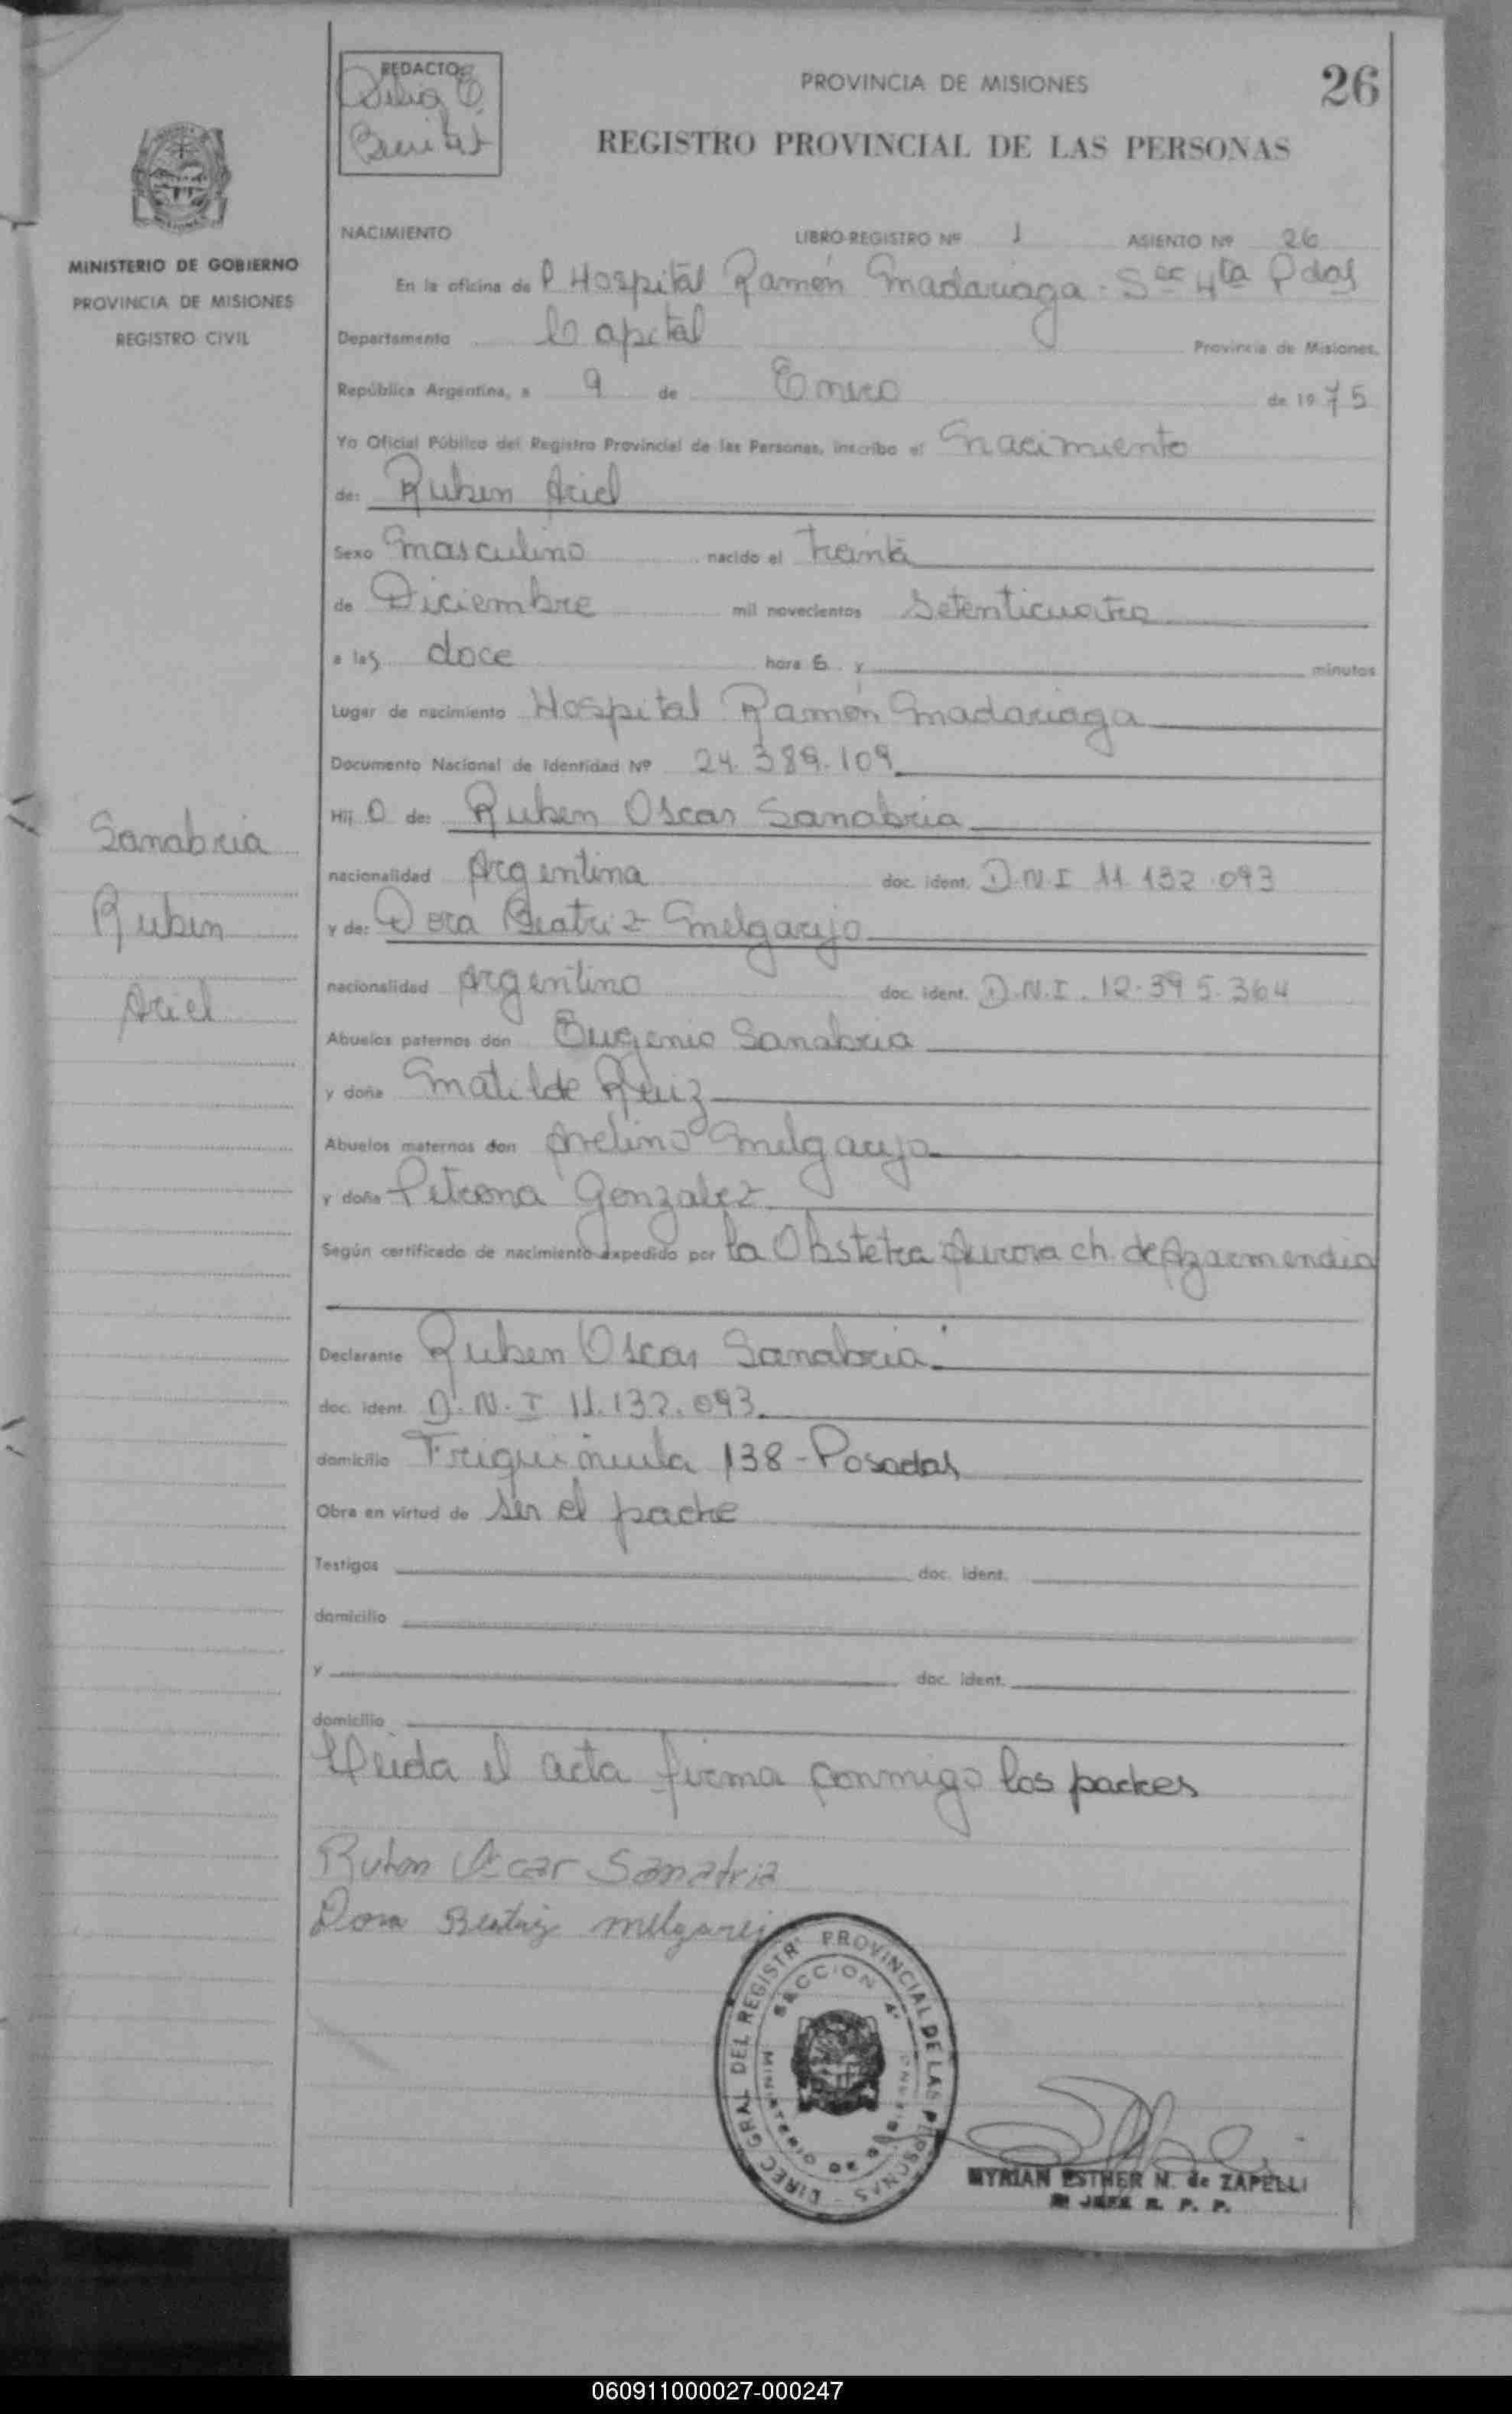 26
REDACTO:
Delia E.
Benitez
PROVINCIA DE MISIONES
REGISTRO PROVINCIAL DE LAS PERSONAS
MINISTERIO DE GOBIERNO
PROVINCIA DE MISIONES
REGISTRO CIVIL
NACIMIENTO LIBRO-REGISTRO Nº 1 ASIENTO Nº 26
En la oficina de P. Hospital Ramón Madariaga - Sec 4ta Pdas
Departamento Capital Provincia de Misiones,
República Argentina, a 9 de Enero de 1975
Yo Oficial Público del Registro Provincial de las Personas, inscribo el Nacimiento
de: Ruben Ariel
Sexo Masculino nacido el treinta
de Diciembre mil novecientos Setenticuatro
a las doce hora s y minutos
Lugar de nacimiento Hospital Ramón Madariaga
Documento Nacional de Identidad Nº 24.389.109
Hij o de: Ruben Oscar Sanabria
nacionalidad Argentina doc. ident. D.N.I 11.132.093
y de: Dora Beatriz Melgarejo
nacionalidad Argentina doc. ident. D.N.I. 12.395.364
Abuelos paternos don Eugenio Sanabria
y doña Matilde Ruiz
Abuelos maternos don Avelino Melgarejo
y doña Petrona Gonzalez
Según certificado de nacimiento expedido por la Obstetra Aurora ch. de Azarmendia
Declarante Ruben Oscar Sanabria
doc. ident. D.N.I 11.132.093
domicilio 138 - Posadas
Obra en virtud de ser el padre
Testigos doc. ident.
domicilio
y doc. ident.
domicilio
Lleida el acta firma conmigo los padres
Ruben Oscar Sanabria
Dora Beatriz Melgarejo
Sanabria
Ruben
Ariel
DIREC. GRAL DEL REGISTR. PROVINCIAL DE LAS PERSONAS
SECCION 4ª
MINISTERIO DE GOBIERNO
MYRIAN ESTHER N. de ZAPELLI
JEFE R. P. P.
060911000027-000247